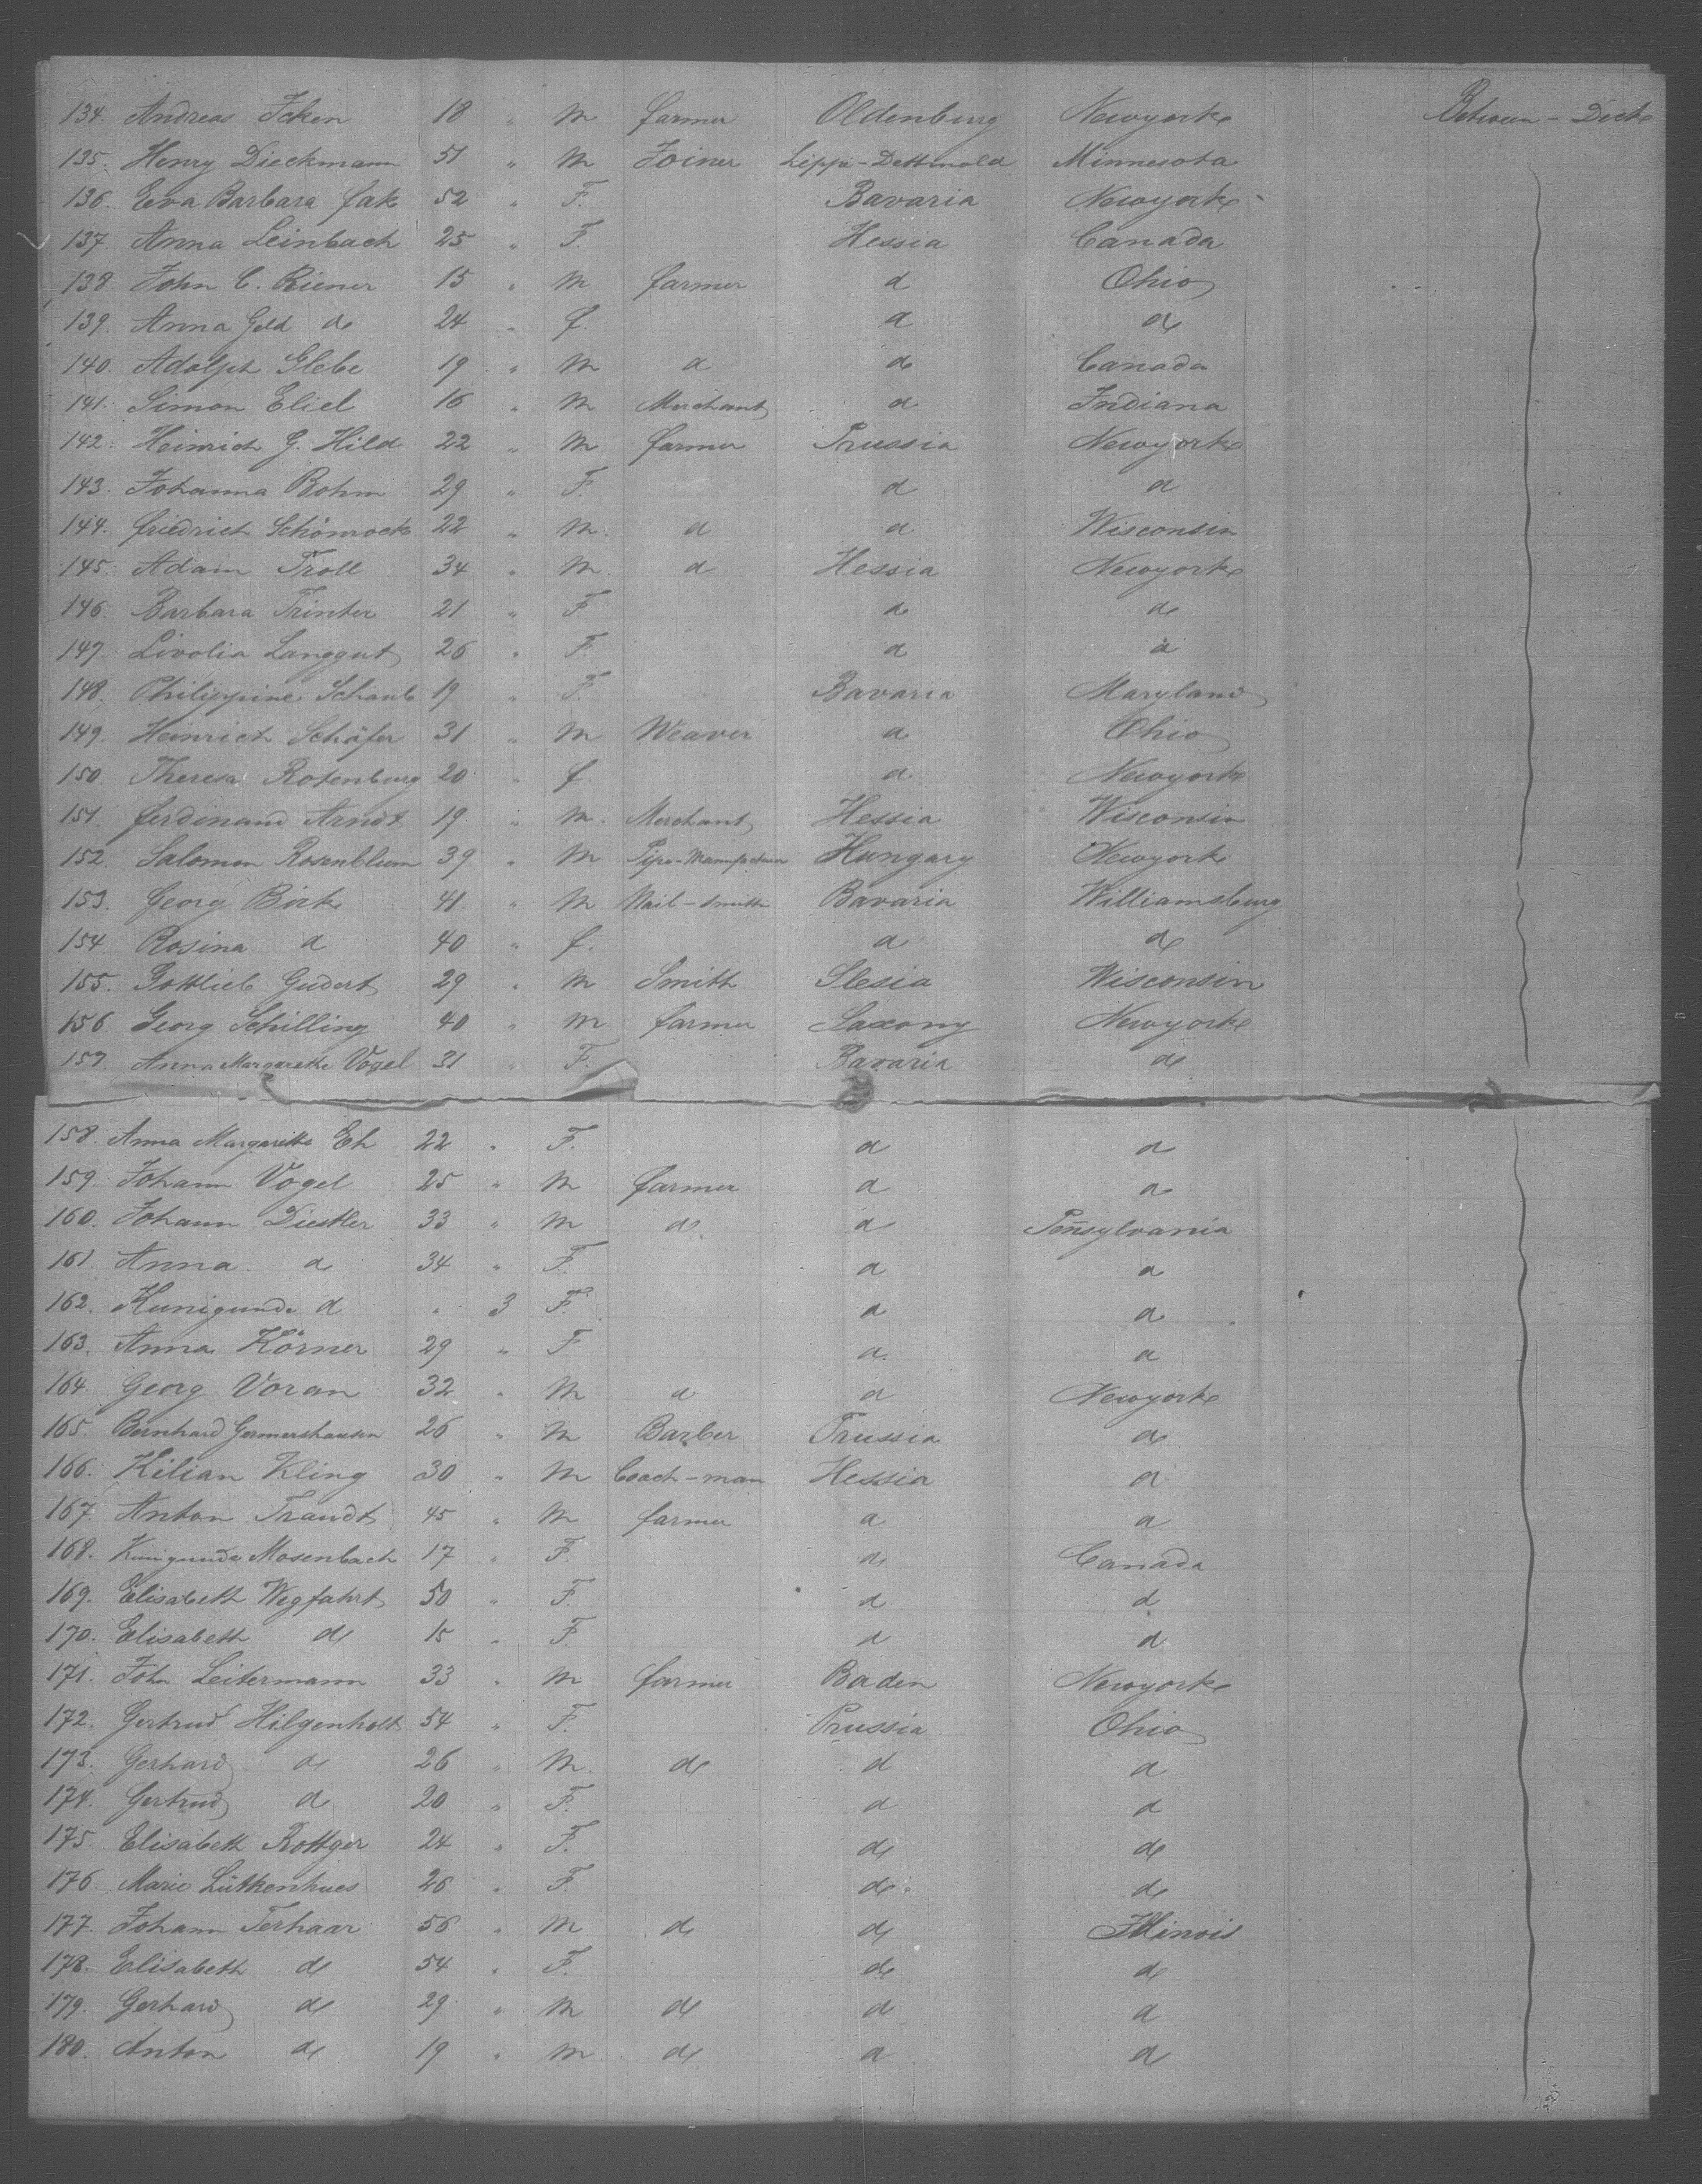 134. Andreas Icken 18 " M farmer Oldenburg Newyork Between-Deck
135. Henry Dieckmann 51 " M Joiner Lippe-Dettmold Minnesota
136. Eva Barbara fak 52 " F. Bavaria Newyork
137. Anna Leinbach 25 " F. Hessia Canada
138. John C. Riener 15 " M farmer d Ohio
139. Anna Geld d 24 " f. d d
140. Adolph Glebe 19 " M d d Canada
141. Simon Eliel 16 " M Merchant d Indiana
142. Heinrich G. Hild 22 " M farmer Prussia Newyork
143. Johanna Bohm 29 " F. d d
144. friedrich Schönrock 22 " M. d d Wisconsin
145. Adam Troll 34 " M. d Hessia Newyork
146. Barbara Trinter 21 " F. d d
147. Livolia Langgut 26 " F. d d
148. Philippine Schaub 19 " F. Bavaria Maryland
149. Heinrich Schäfer 31 " M Weaver d Ohio
150. Theresa Rotenburg 20 " f. d Newyork
151. ferdinand Arndt 19 " M. Merchant Hessia Wisconsin
152. Salomon Rosenblum 39 " M Pipe-Manufacturer Hungary Newyork
153. Georg Birk 41 " M Nail-smith Bavaria Williamsburg
154. Rosina d 40 " f. d d
155. Gottlieb Gudert 29 " M Smith Slesia Wisconsin
156. Georg Schilling 40 " M farmer Saxony Newyork
157. Anna Margarethe Vogel 31 " F. Bavaria d
158. Anna Margarethe Eh 22 " F. d d
159. Johann Vogel 25 " M farmer d d
160. Johann Diestler 33 " M d. d Peñsylvania
161. Anna d 34 " F. d d
162. Kunigunde d " 3 F. d d
163. Anna Körner 29 " F d. d
164. Georg Voran 32 " M d d Newyork
165. Bernhard Germershausen 26 " M Barber Prussia d
166. Kilian Kling 30 " M Coach-man Hessia d
167. Anton Traudt 45 " M farmer d d
168. Kunigunde Mosenbach 17 " F. d Canada
169. Elisabeth Wegfahrt 50 " F. d d
170. Elisabeth d 15 " F. d d
171. John Leitermann 33 " M farmer Baden Newyork
172. Gertrud Hilgenholt 54 " F. Prussia Ohio
173. Gerhard d 26 " M. d d d
174. Gertrud d 20 " F. d d
175. Elisabeth Rottger 24 " F. d d
176. Marie Lütkenhues 26 " F. d d
177. Johann Terhaar 56 " M d d Illinois
178. Elisabeth d 54 " F. d d
179. Gerhard d 29 " M d d d
180. Anton d 19 " M d d d